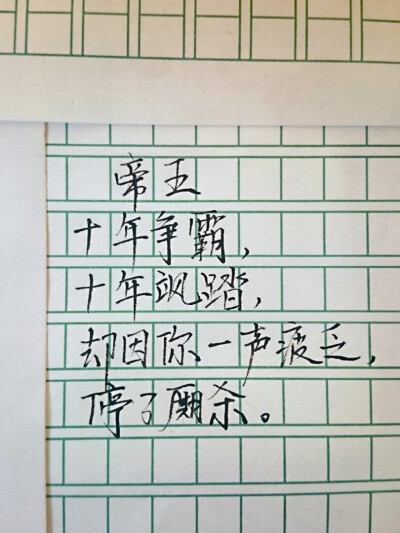 帝王
十年争霸，
十年飒踏，
却因你一声疲乏，
停了厮杀。